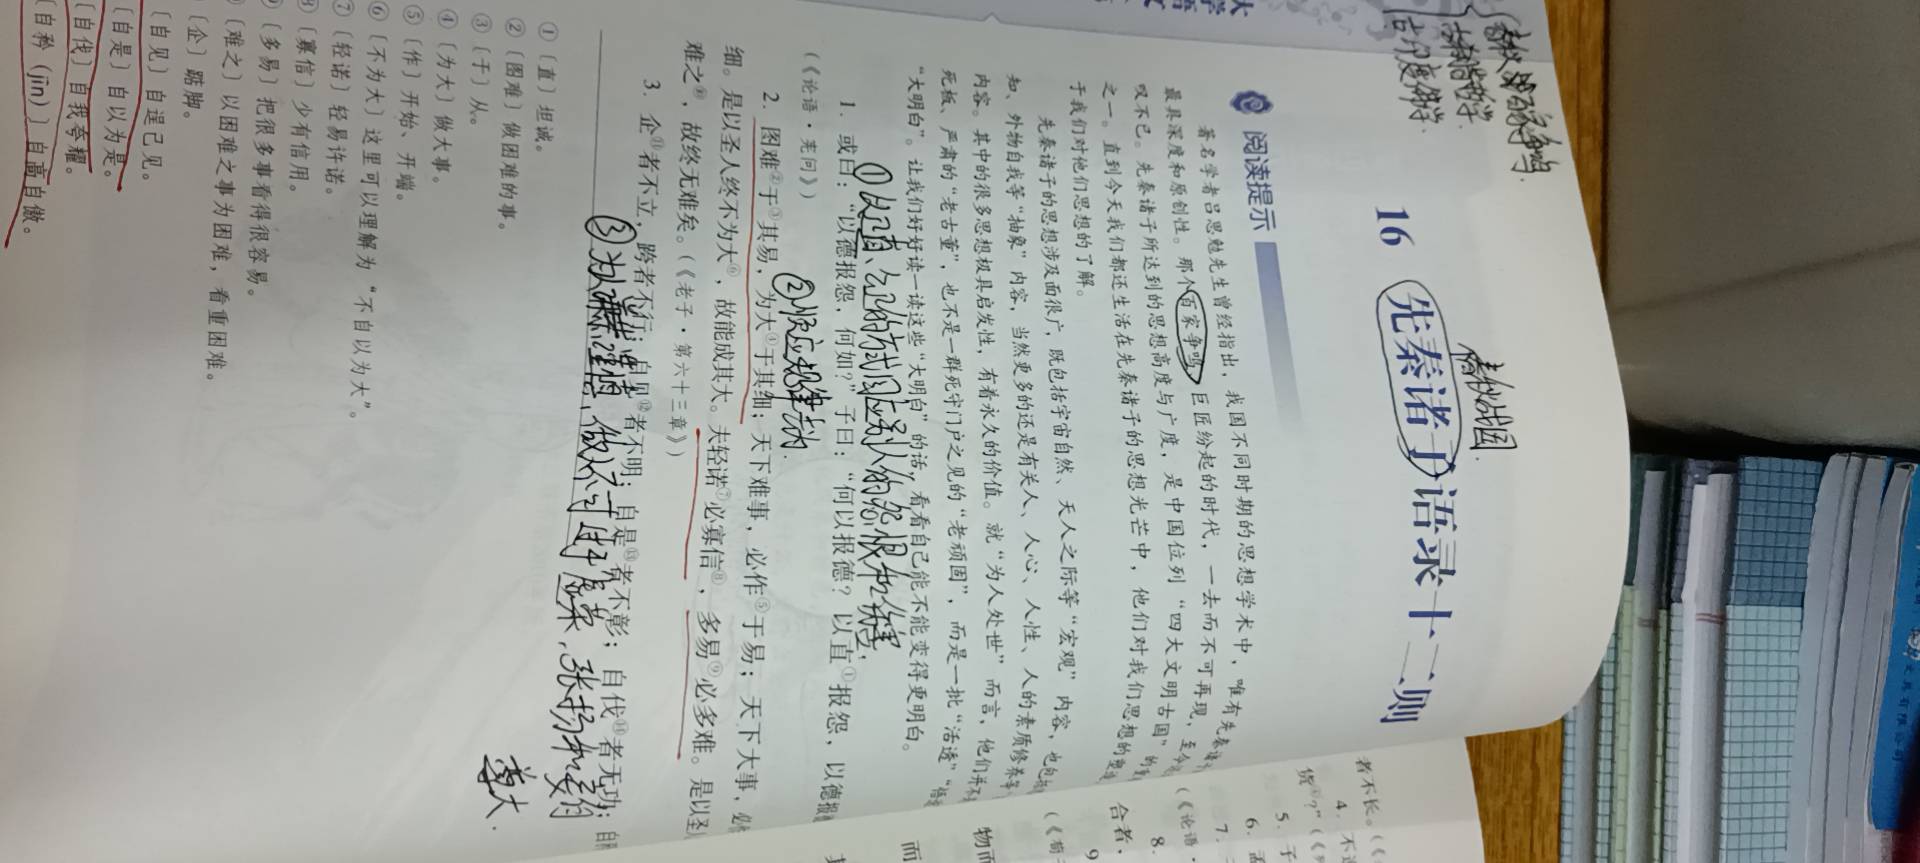 大学语文
春秋
百家争鸣
古希腊哲学
古印度佛学
16 先秦诸子语录十二则
春秋战国
阅读提示
著名学者吕思勉先生曾经指出，我国不同时期的思想学术中，唯有先秦
最具深度和原创性。那个百家争鸣、巨匠纷起的时代，一去而不可再现，至今
叹不已。先秦诸子所达到的思想高度与广度，是中国位列“四大文明古国”的
之一。直到今天我们都还生活在先秦诸子的思想光芒中，他们对我们思想的
于我们对他们思想的了解。
先秦诸子的思想涉及面很广，既包括宇宙自然、天人之际等“宏观”内容，也包
知、外物自我等“抽象”内容，当然更多的还是有关人、人心、人性、人的素质修养等
内容。其中的很多思想极具启发性，有着永久的价值。就“为人处世”而言，他们并不
死板、严肃的“老古董”，也不是一群死守门户之见的“老顽固”，而是一批“活透”“悟
“大明白”。让我们好好读一读这些“大明白”的话，看看自己能不能变得更明白。
①以正直、公正的方式回应别人的怨恨和伤害；
1. 或曰：“以德报怨，何如？”子曰：“何以报德？以直①报怨，以德报
（《论语·宪问》）
②顺应规律去做.
2. 图难②于③其易，为大④于其细；天下难事，必作⑤于易；天下大事，必
细。是以圣人终不为大⑥，故能成其大。夫轻诺⑦必寡信⑧，多易⑨必多难。是以圣
难之⑩，故终无难矣。（《老子·第六十三章》）
3. 企⑪者不立，跨者不行；自见⑫者不明；自是⑬者不彰；自伐⑭者无功；自
③为人谦虚谨慎，做人不可好高骛荣，张扬和妄自
尊大.
①〔直〕坦诚。
②〔图难〕做困难的事。
③〔于〕从。
④〔为大〕做大事。
⑤〔作〕开始、开端。
⑥〔不为大〕这里可以理解为“不自以为大”。
⑦〔轻诺〕轻易许诺。
⑧〔寡信〕少有信用。
〔多易〕把很多事看得很容易。
〔难之〕以困难之事为困难，看重困难。
〔企〕踮脚。
〔自见〕自逞己见。
〔自是〕自以为是。
〔自伐〕自我夸耀。
〔自矜（jīn）〕自高自傲。
者不长。（《
4. 不
货
5. 子
6. 孟
7.
（《论语·
8.
合者，
（《荀
9
物而
而